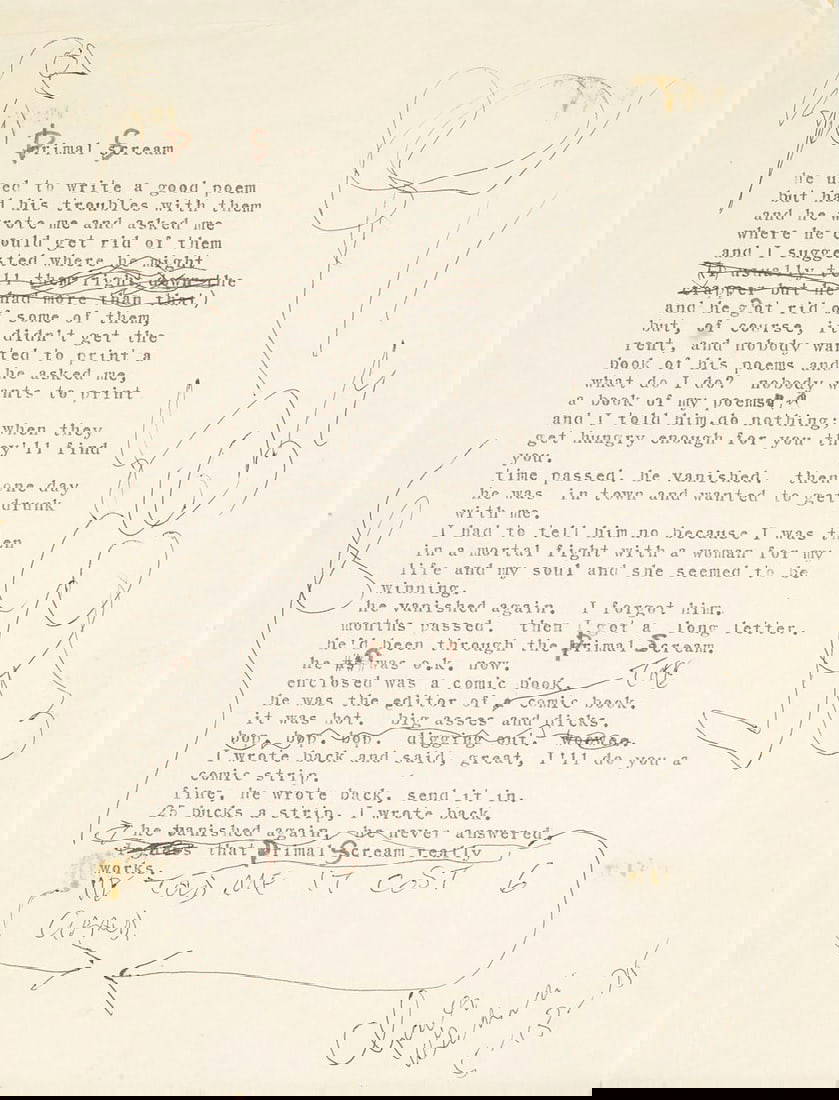 Primal Scream
P S
ed to write a good poem
d his troubles with them
rote me and asked me
ould get rid of them
sted where he might
ll them right down the
had more than that)
f some of them,
didn't get the
ted to print a
he asked me,
ants to print
when they
ey'll find
one day
drunk
en
he u
but ha
and he w
where he c
and I sugge
(I usually to
crapper but he
and he got rid o
but, of course, it
rent, and nobody wan
book of his poems and
what do I do? nobody w
a book of my poems,
and I told him, do nothing:
get hungry enough for you th
you.
time passed. he vanished. then
he was in town and wanted to get
with me.
I had to tell him no because I was th
in a mortal fight with a woman for my
life and my soul and she seemed to be
winning.
he vanished again. I forgot him.
months passed. then I got a long letter.
he'd been through the Primal Scream.
he ### was o.k. now.
enclosed was a comic book.
he was the editor of a comic book. THE
it was hot. big asses and dicks.
bop. bop. bop. digging out.
I wrote back and said, great, I'll do you a
comic strip.
fine, he wrote back. send it in.
25 bucks a strip, I wrote back.
he vanished again, he never answered.
I guess that Primal Scream really
works.
HE TOLD ME IT COST 6